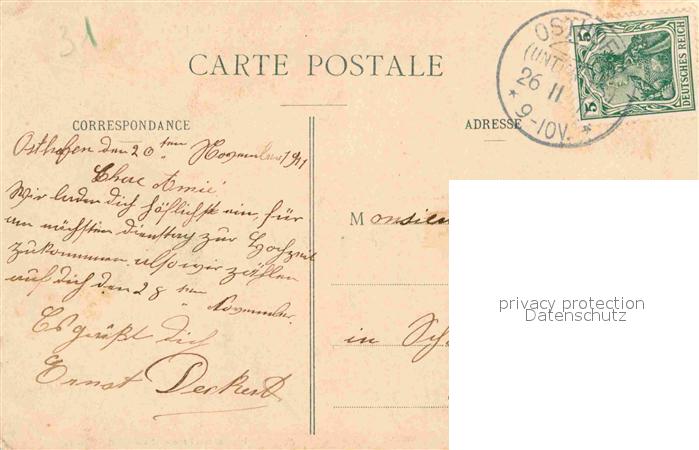 31
CARTE POSTALE
OSTH
(UNT
26 11
* 9-10V. *
5 5
DEUTSCHES REICH
CORRESPONDANCE
ADRESSE
Osthofen den 26ten November 1911
Chac Amie
Wir laden dich höflichst ein, für
am nächsten dienstag zur Hochzeit
zukommen. also wir zählen
auf dich den 28ten
November.
Es grüßt dich
Ernst Deckert
Monsieu
in Sch
privacy protection
Datenschutz